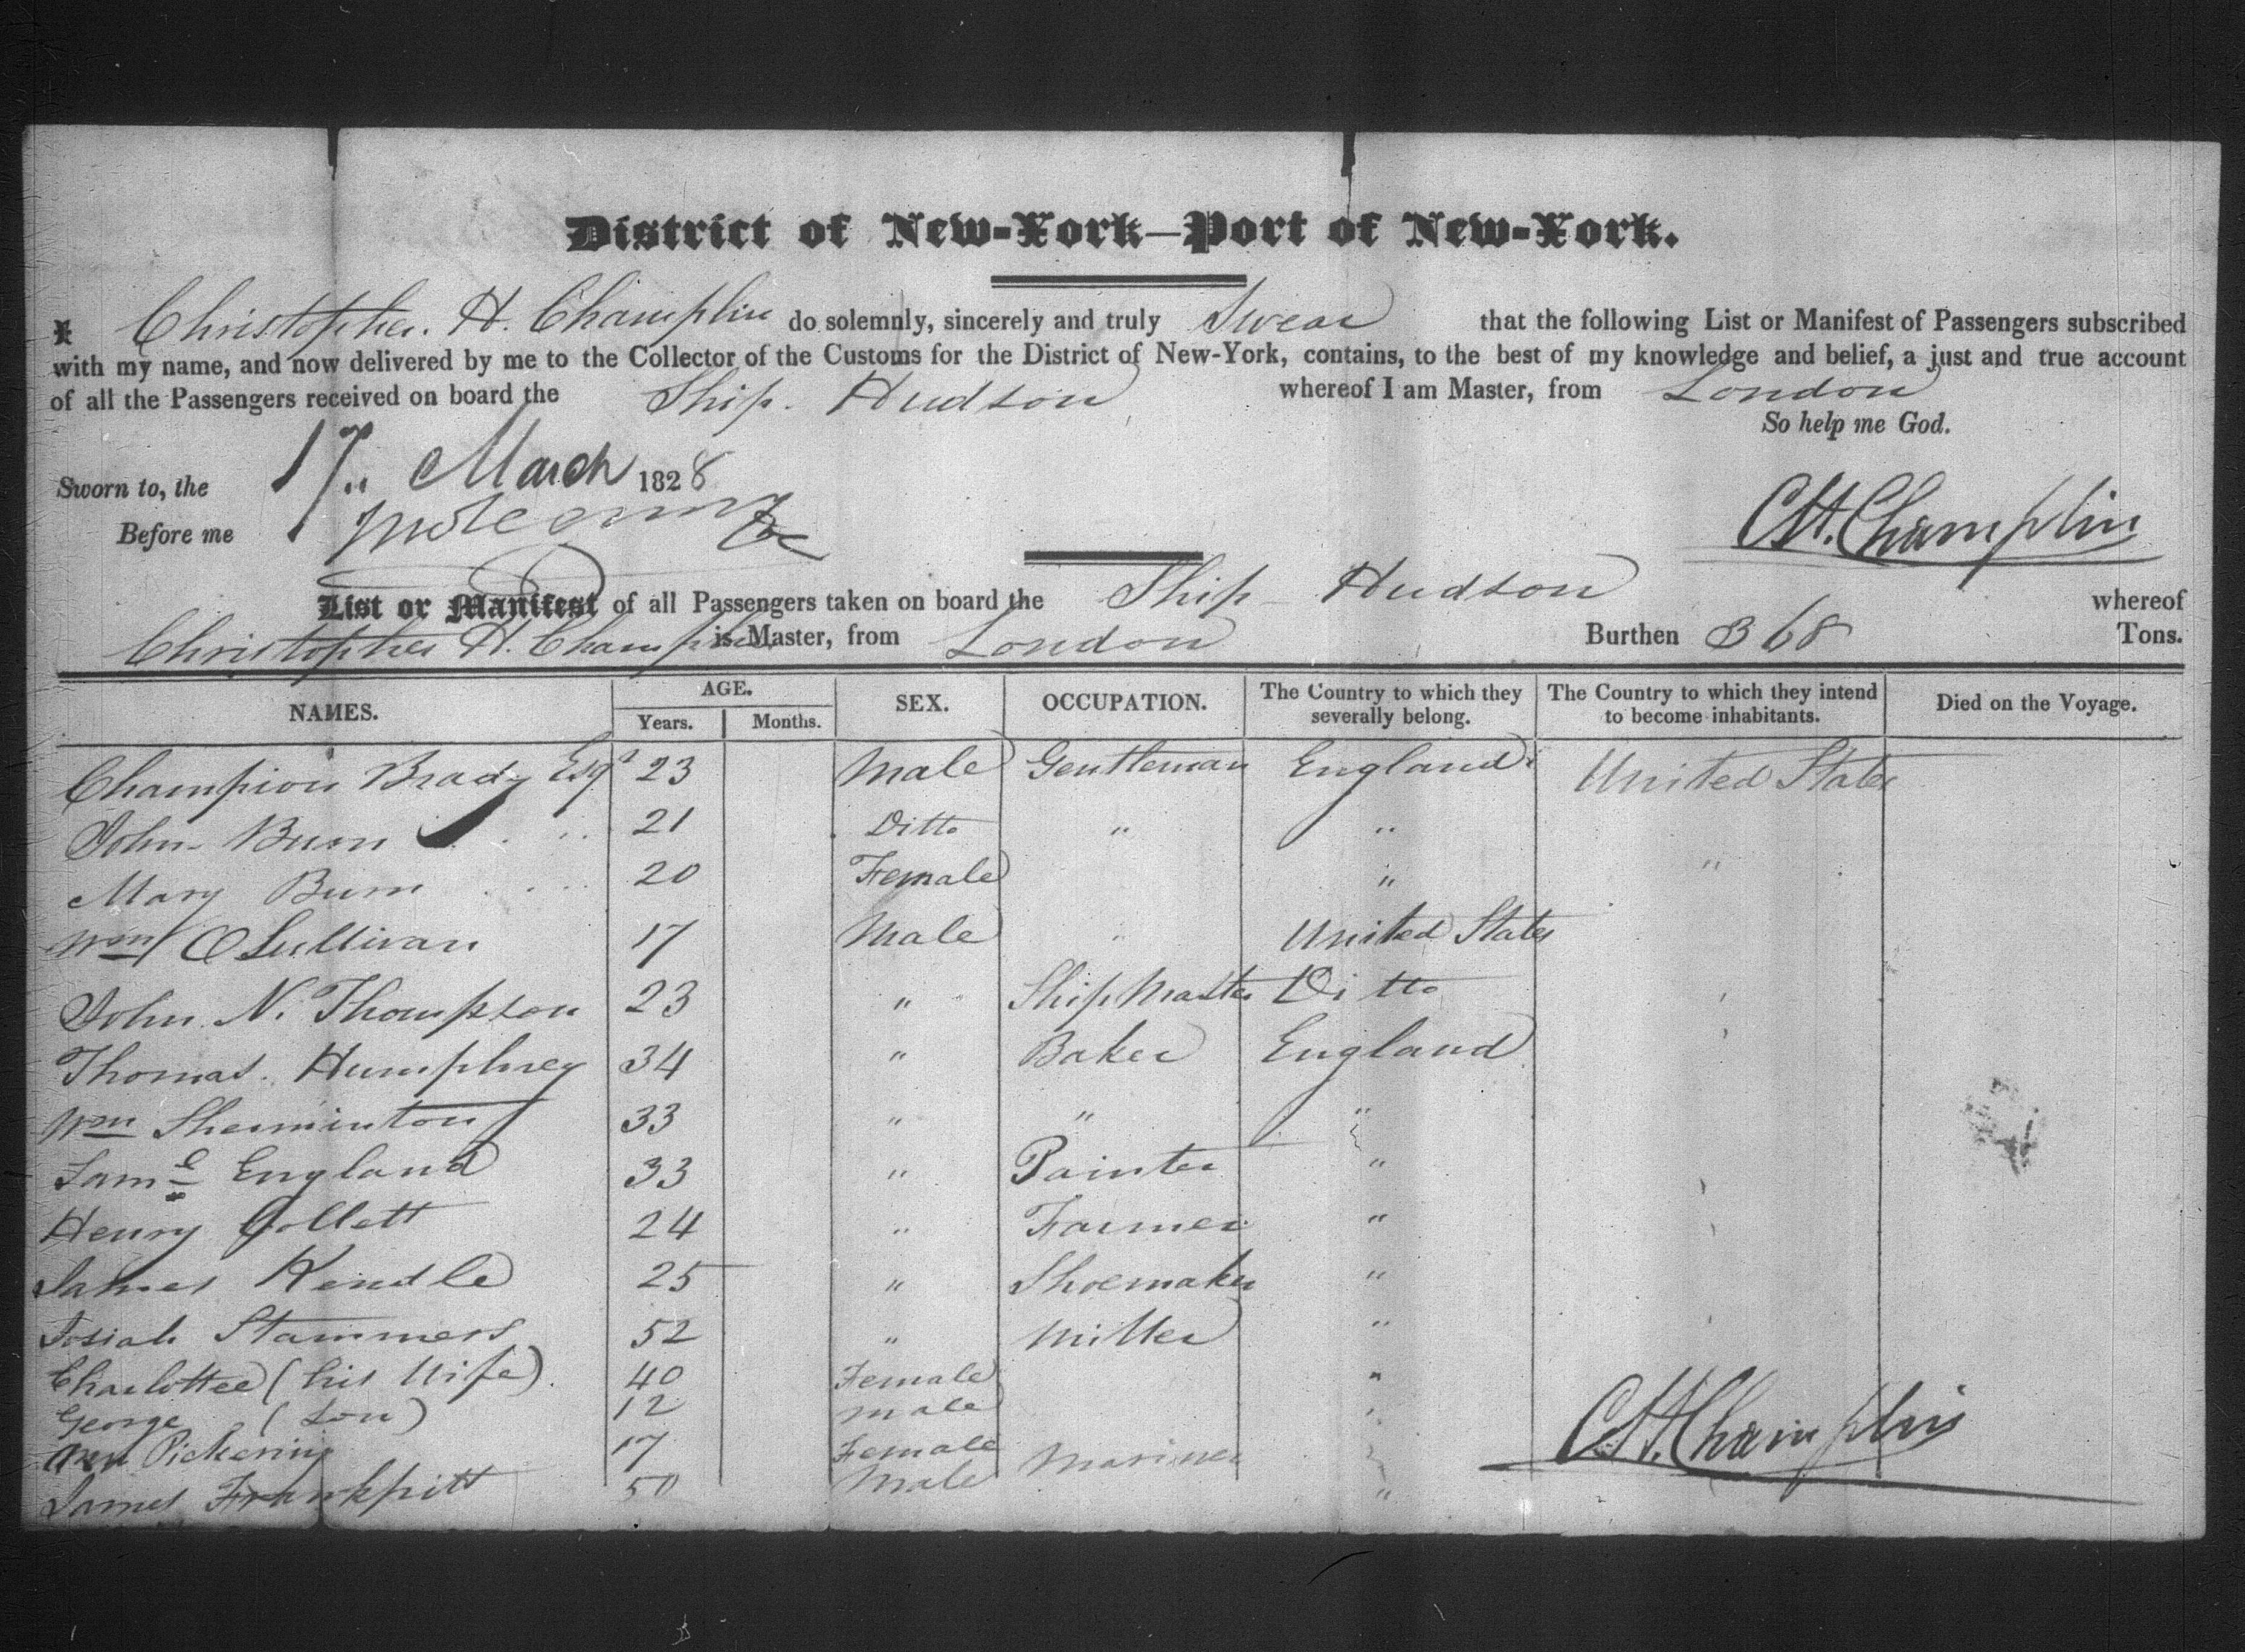 District of New-York—Port of New-York.
I Christopher. H. Champlin do solemnly, sincerely and truly Swear that the following List or Manifest of Passengers subscribed
with my name, and now delivered by me to the Collector of the Customs for the District of New-York, contains, to the best of my knowledge and belief, a just and true account
of all the Passengers received on board the Ship. Hudson whereof I am Master, from London
So help me God.
Sworn to, the 17.. March 1828
Before me
C H. Champlin
List or Manifest of all Passengers taken on board the Ship Hudson whereof
Christopher H. Champlin is Master, from London Burthen 368 Tons.
NAMES. AGE. Years. Months. SEX. OCCUPATION. The Country to which they severally belong. The Country to which they intend to become inhabitants. Died on the Voyage.
Champion Brady Esqr 23 Male Gentleman England United States
John Burn 21 Ditto " "
Mary Burn 20 Female " "
Wm O Sullivan 17 Male " United States
John N. Thompson 23 " Ship Master Ditto
Thomas. Humphrey 34 " Baker England
Wm Sherminton 33 " " "
Saml England 33 " Painter "
Henry Gollett 24 " Farmer "
James Kendle 25 " Shoemaker "
Josiah Stammers 52 " Miller "
Charlottee (his Wife) 40 Female "
George (Son) 12 Male "
Ann Pickering 17 Female
James Frankpitt 50 Male Mariner "
C H. Champlin